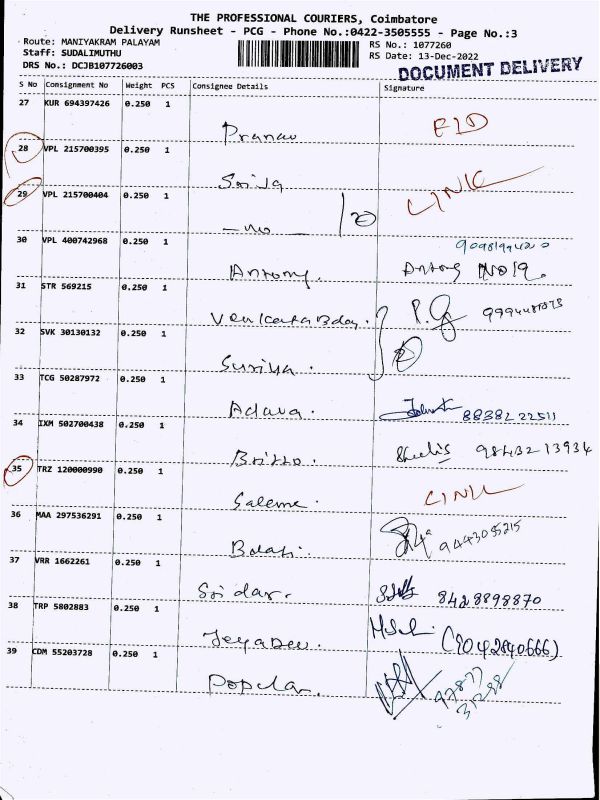 THE PROFESSIONAL COURIERS, Coimbatore
Delivery Runsheet - PCG - Phone No.:0422-3505555 - Page No.:3
Route: MANIYAKRAM PALAYAM
Staff: SUDALIMUTHU
DRS No.: DCJB107726003
RS No.: 1077260
RS Date: 13-Dec-2022
DOCUMENT DELIVERY
S No Consignment No Weight PCS Consignee Details Signature
27 KUR 694397426 0.250 1
Pranav
28 VPL 215700395 0.250 1
29 VPL 215700404 0.250 1
LINK
30 VPL 400742968 0.250 1
Antony.
31 STR 569215 0.250 1
P.G
32 SVK 30130132 0.250 1
Suriya.
33 TCG 50287972 0.250 1
88382 22511
34 IXM 502700438 0.250 1
Britto. 98432 13934
35 TRZ 120000990 0.250 1
Saleme. LINK
36 MAA 297536291 0.250 1
Balaji. 9443085215
37 VRR 1662261 0.250 1
Sridar. 8428898870
38 TRP 5802883 0.250 1
Jeyadev. (9042840666)
39 CDM 55203728 0.250 1